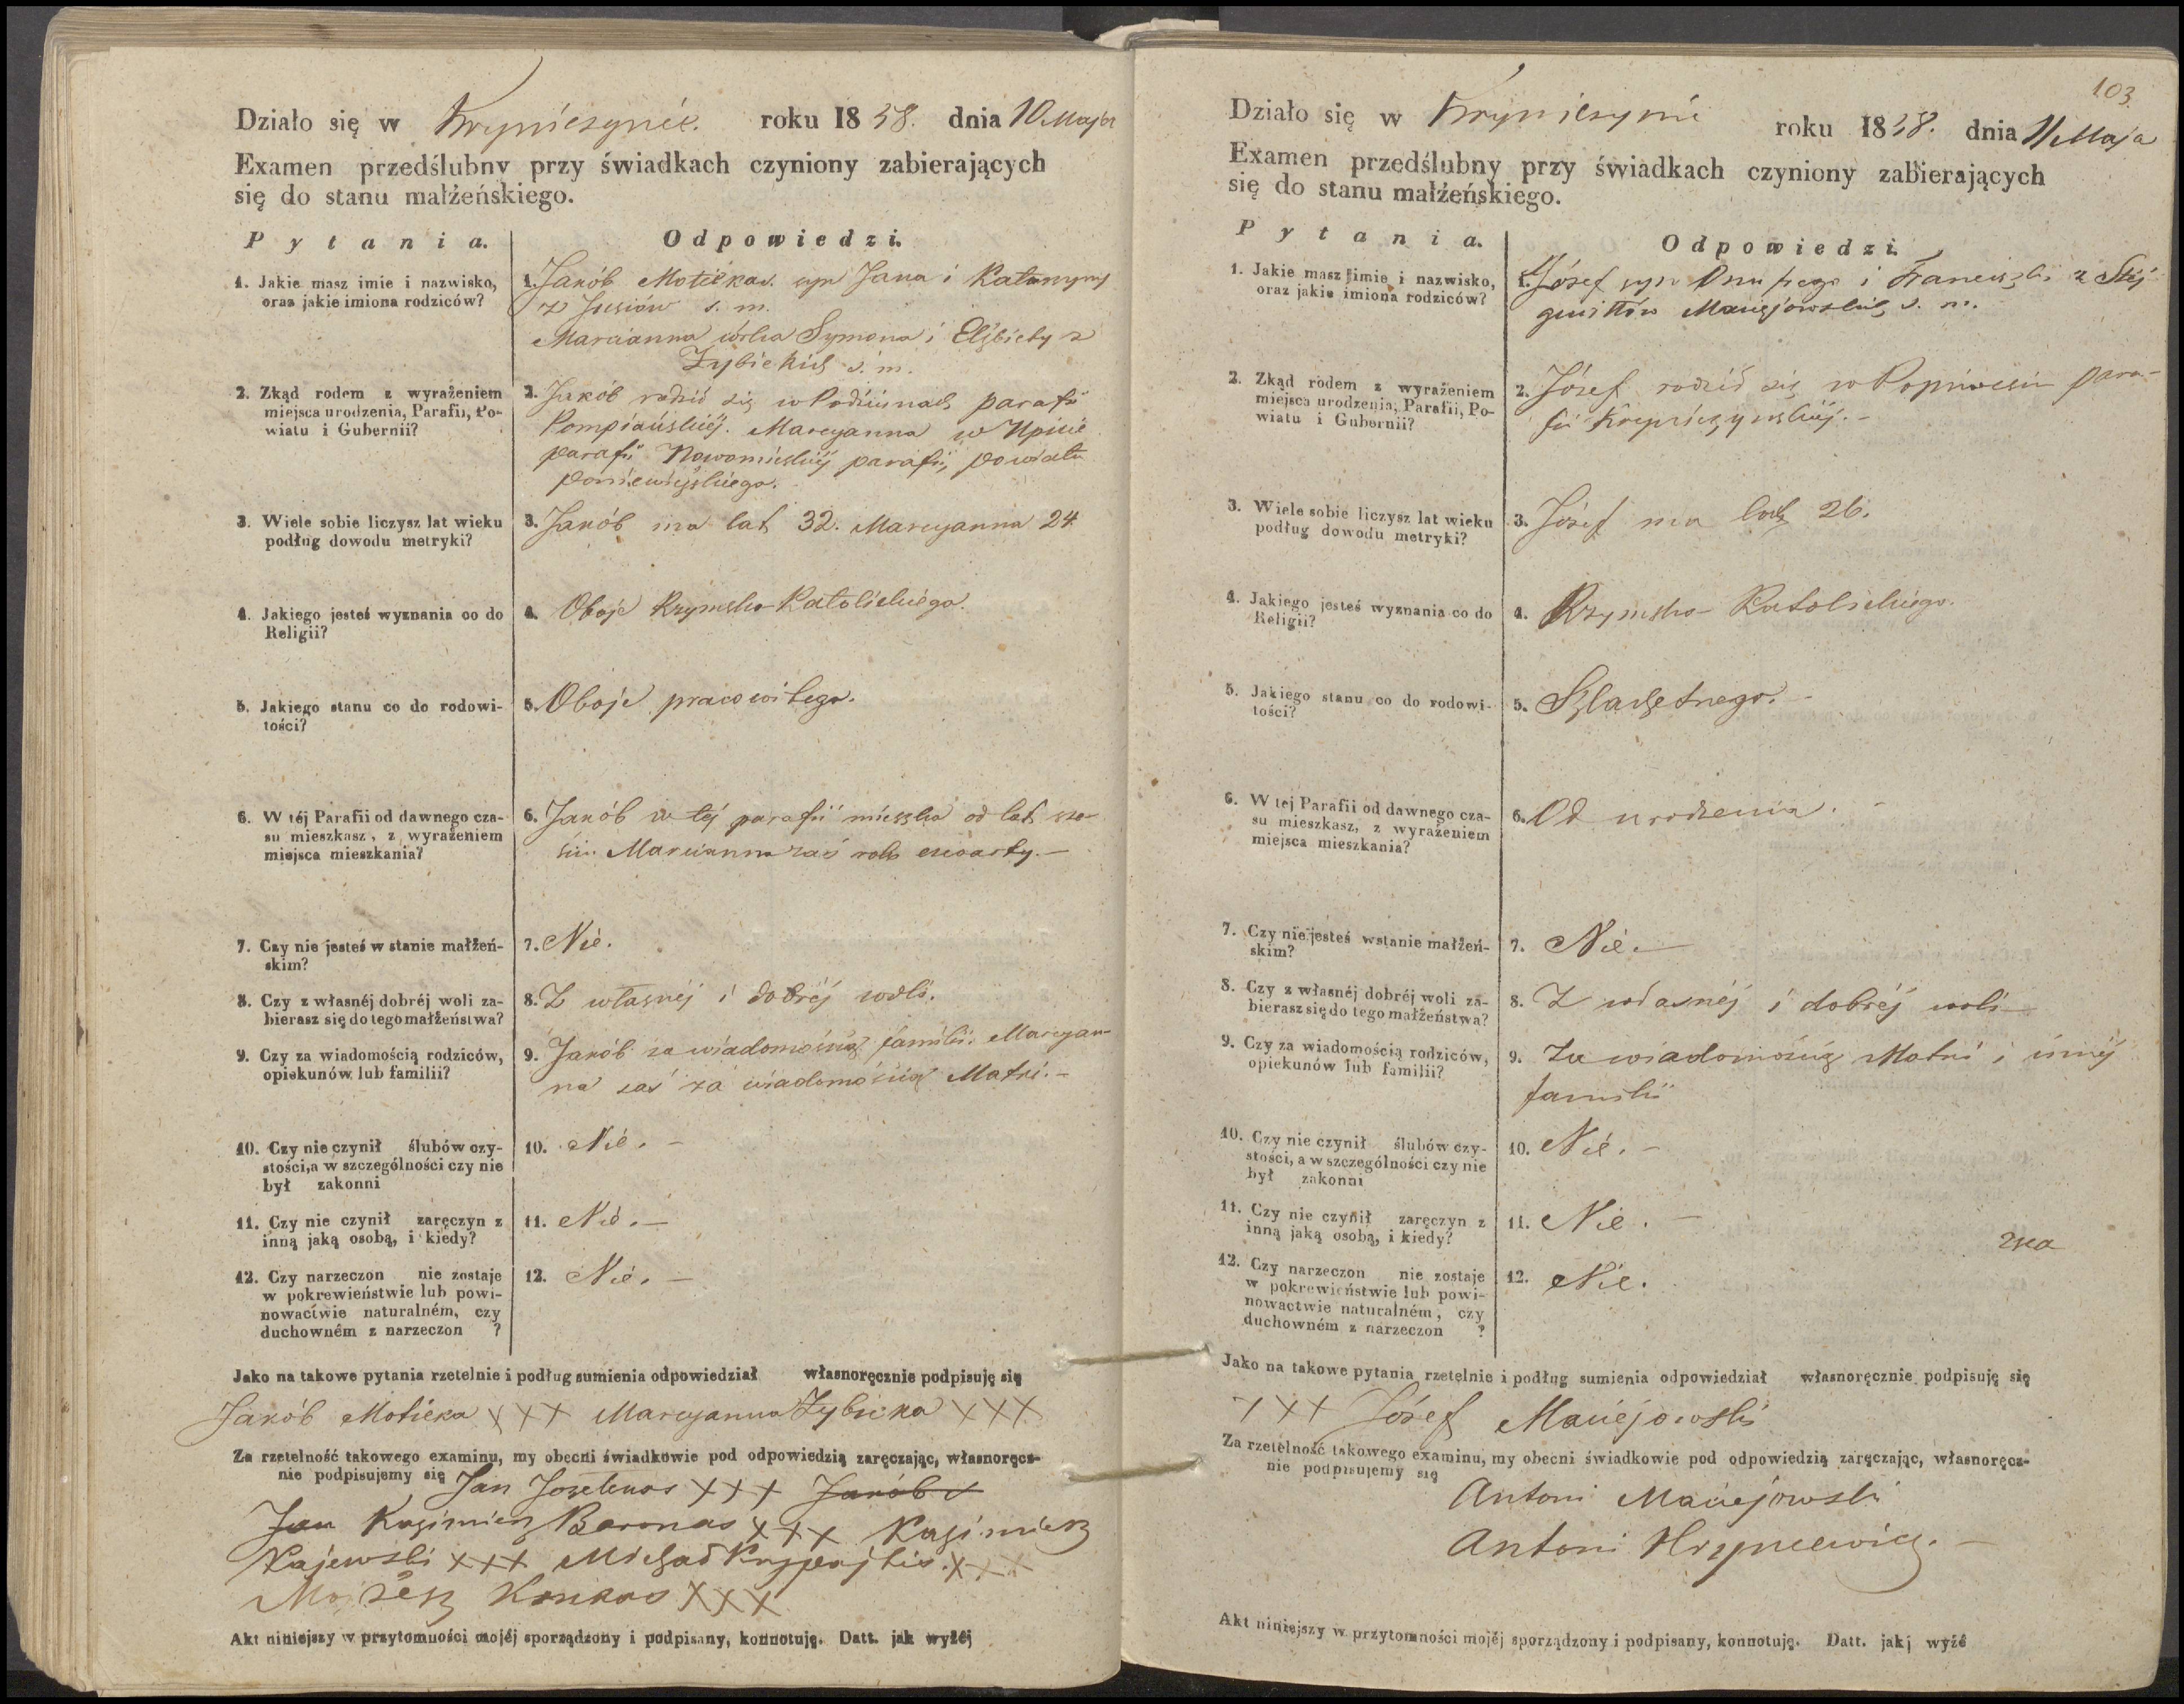 Działo się w Krynieżynie. roku 1858. dnia 10 Maja
Examen przedślubny przy świadkach czyniony zabierających
się do stanu małżeńskiego.
Pytania.
Odpowiedzi.
1. Jakie masz imie i nazwisko,
oraz jakie imiona rodziców?
1. Jakób Motiekas. syn Jana i Katarzyny
z s. m.
Marcianna córka Symona i Elżbiety z
Zybickich s. m.
2. Zkąd rodem z wyrażeniem
miejsca urodzenia, Parafii, Po-
wiatu i Gubernii?
2. Jakób rodził się w parafii
Pompiańskiéj. Marcyanna w Upicie
parafii Nowomiéskiéj parafii, powiatu
poniewiéjskiego.
3. Wiele sobie liczysz lat wieku
podług dowodu metryki?
3. Jakób ma lat 32. Marcyanna 24.
4. Jakiego jesteś wyznania co do
Religii?
4. Oboje Rzymsko-Katolickiego.
5. Jakiego stanu co do rodowi-
tości?
5. Oboje pracowitego.
6. W téj Parafii od dawnego cza-
su mieszkasz, z wyrażeniem
miejsca mieszkania?
6. Jakób w téj parafii mieszka od lat sze-
ściu. Marcianna zaś rok czwarty. —
7. Czy nie jesteś w stanie małżeń-
skim?
7. Nie.
8. Czy z własnéj dobréj woli za-
bierasz się do tego małżeństwa?
8. Z własnéj i dobréj woli.
9. Czy za wiadomością rodziców,
opiekunów lub familii?
9. Jakób za wiadomością familii. Marcyan-
na zaś za wiadomością Matki. -
10. Czy nie czynił ślubów czy-
stości, a w szczególności czy nie
był zakonni
10. Nie. -
11. Czy nie czynił zaręczyn z
inną jaką osobą, i kiedy?
11. Nie. —
12. Czy narzeczon nie zostaje
w pokrewieństwie lub powi-
nowactwie naturalném, czy
duchowném z narzeczon ?
12. Nie. —
Jako na takowe pytania rzetelnie i podług sumienia odpowiedział własnoręcznie podpisuję się
Jakób Motieka XXX Marcyanna Zybicka XXX
Za rzetelność takowego examinu, my obecni świadkowie pod odpowiedzią zaręczając, własnoręcz-
nie podpisujemy się Jan XXX Jakób
Jan Kazimierz Baronas XXX Kazimierz
Kajewski XXX Michał XXX
XXX
Akt niniejszy w przytomności mojéj sporządzony i podpisany, konnotuję. Datt. jak wyżéj
103.
Działo się w Krynieżynie roku 1858. dnia 11 Maja
Examen przedślubny przy świadkach czyniony zabierających
się do stanu małżeńskiego.
Pytania.
Odpowiedzi.
1. Jakie masz imie i nazwisko,
oraz jakie imiona rodziców?
1. Józef syn Onufrego i Franciszki z
Maciejowskich, s. m.
2. Zkąd rodem z wyrażeniem
miejsca urodzenia, Parafii, Po-
wiatu i Gubernii?
2. Józef rodził się w para-
fii
3. Wiele sobie liczysz lat wieku
podług dowodu metryki?
3. Józef ma lat 26.
4. Jakiego jesteś wyznania co do
Religii?
4. Rzymsko-Katolickiego.
5. Jakiego stanu co do rodowi-
tości?
5. Szlachetnego. -
6. W tej Parafii od dawnego cza-
su mieszkasz, z wyrażeniem
miejsca mieszkania?
6. Od urodzenia. -
7. Czy nie jesteś wstanie małżeń-
skim?
7. Nie. —
8. Czy z własnéj dobréj woli za-
bierasz się do tego małżeństwa?
8. Z własnéj i dobréj woli
9. Czy za wiadomością rodziców,
opiekunów lub familii?
9. Za wiadomością Matki i innéj
familii
10. Czy nie czynił ślubów czy-
stości, a w szczególności czy nie
był zakonni
10. Nie. -
11. Czy nie czynił zaręczyn z
inną jaką osobą, i kiedy?
11. Nie. -
12. Czy narzeczon nie zostaje
w pokrewieństwie lub powi-
nowactwie naturalném, czy
duchowném z narzeczon ?
12. Nie.
Jako na takowe pytania rzetelnie i podług sumienia odpowiedział własnoręcznie podpisuję się
XXX Józef Maciejowski
Za rzetelność takowego examinu, my obecni świadkowie pod odpowiedzią zaręczając, własnoręcz-
nie podpisujemy się
Antoni Maciejowski
Antoni Hryncewicz. -
Akt niniejszy w przytomności mojéj sporządzony i podpisany, konnotuję. Datt. jakj wyźé